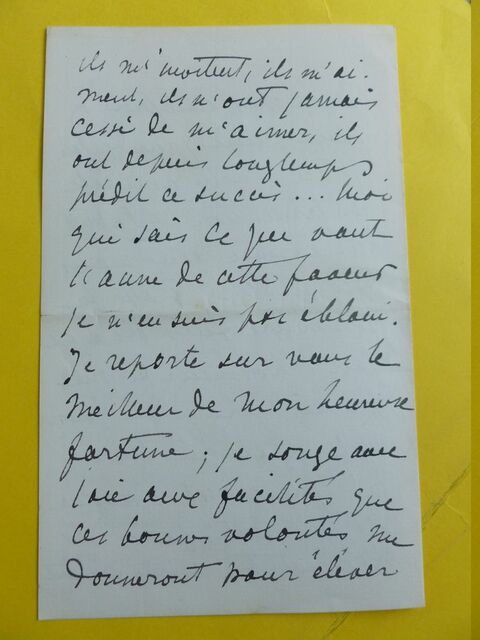 ils m'invitent, ils m'ai-
ment, ils n'ont jamais
cessé de m'aimer, ils
ont depuis longtemps
prédit ce succès... Moi
qui sais ce que vaut
l'aune de cette faveur
je n'en suis pas ébloui.
Je reporte sur vous le
meilleur de mon heureuse
fortune ; je songe avec
joie aux facilités que
ces bonnes volontés me
donneront pour élever